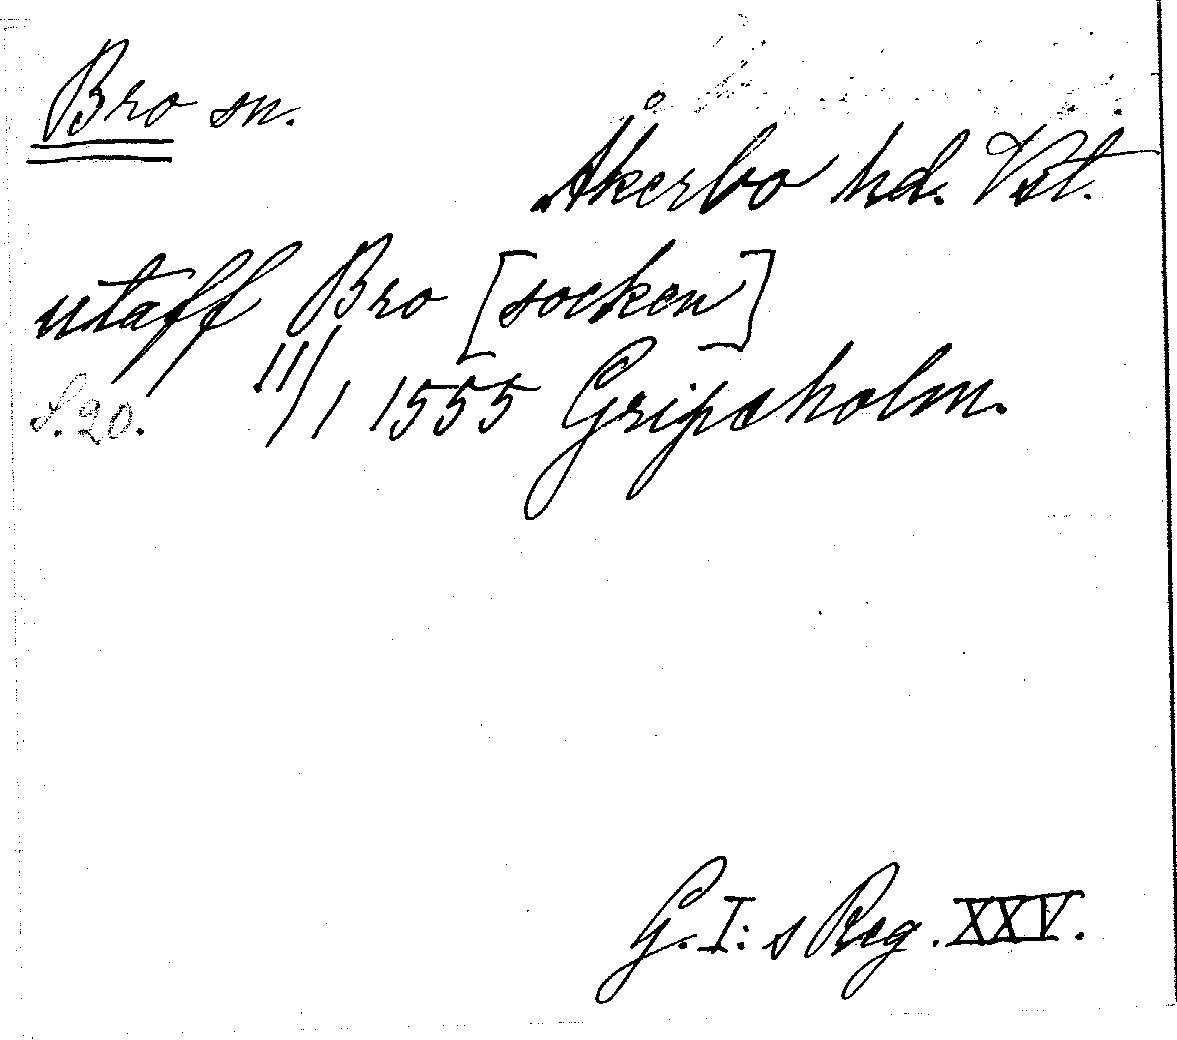 Bro sn.
Åkerbo hd. Vstl.
utaff Bro [socken]
S. 20. 11/1 1555 Gripsholm.
G. I:s Reg. XXV.